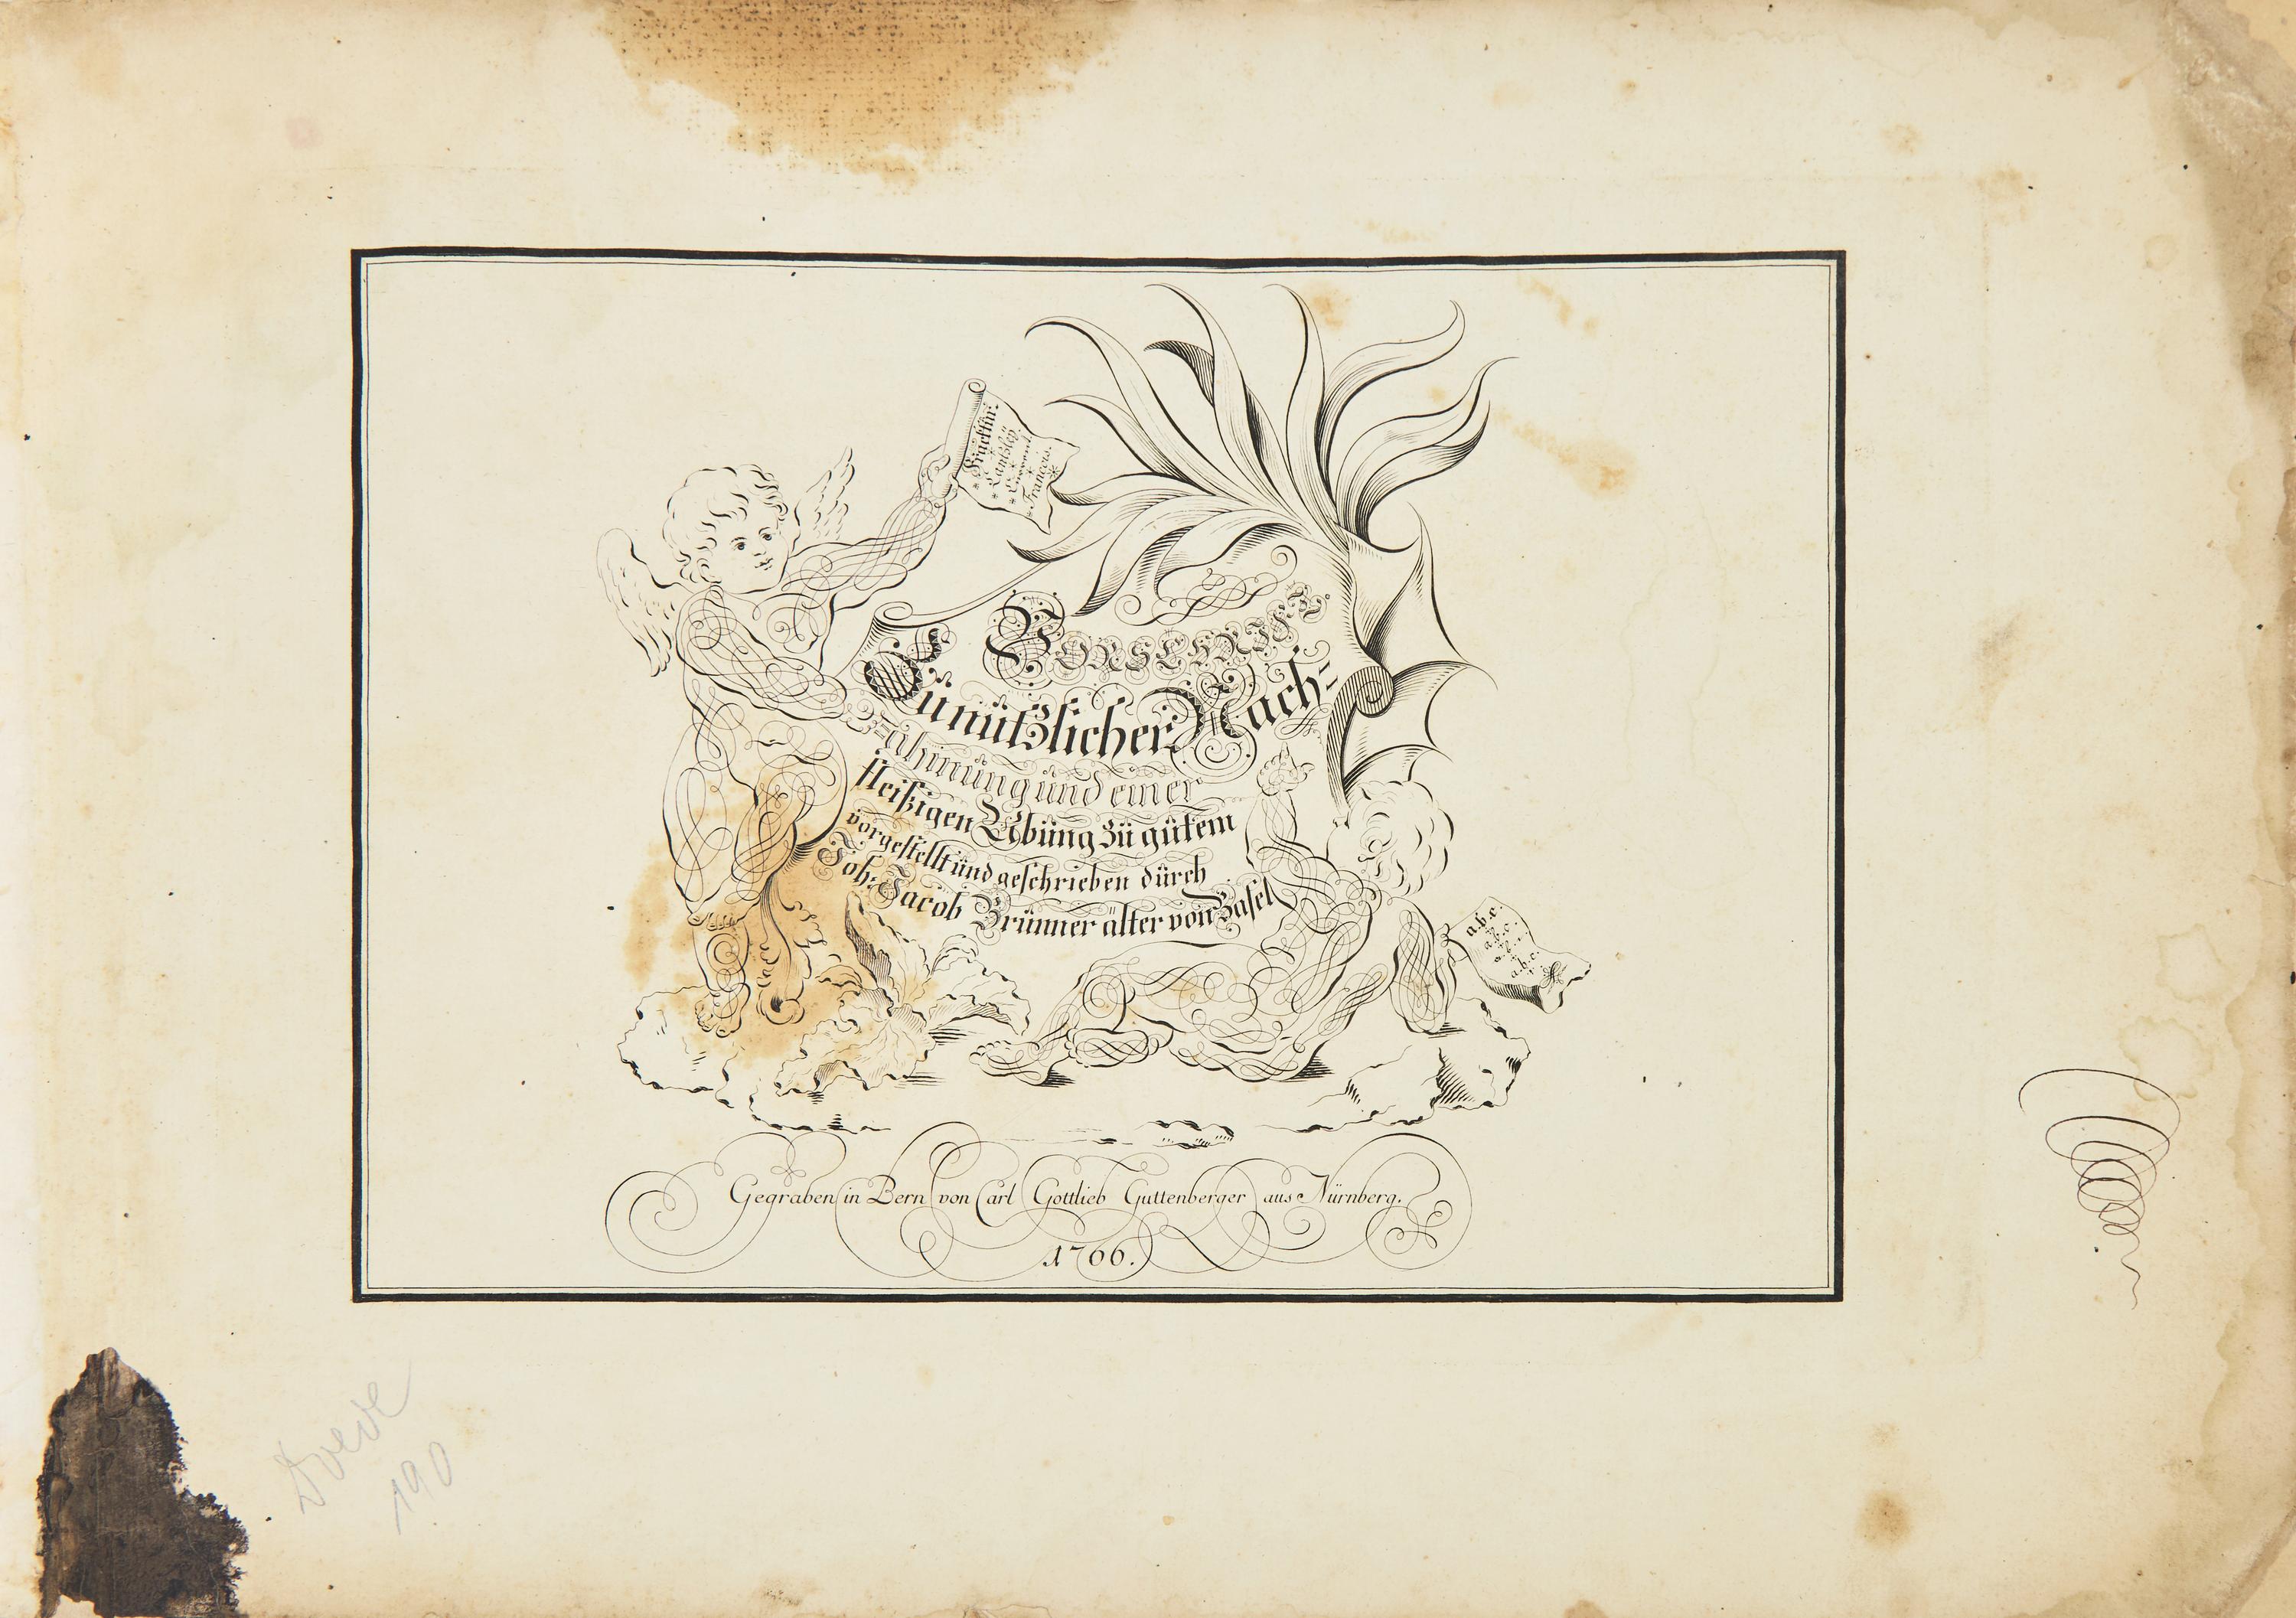 Fractur.
Cantzley.
Current.
Françis.
VORSCHRIFT.
Zu nützlicher Nach-
Ahmung und einer
fleißigen Übung zu gutem
vorgestellt und geschrieben durch
Joh: Jacob Brunner älter von Basel
a.b.c.
a.b.c.
a.b.c.
a.b.c.
Gegraben in Bern von Carl Gottlieb Guttenberger aus Nürnberg.
1766.
190